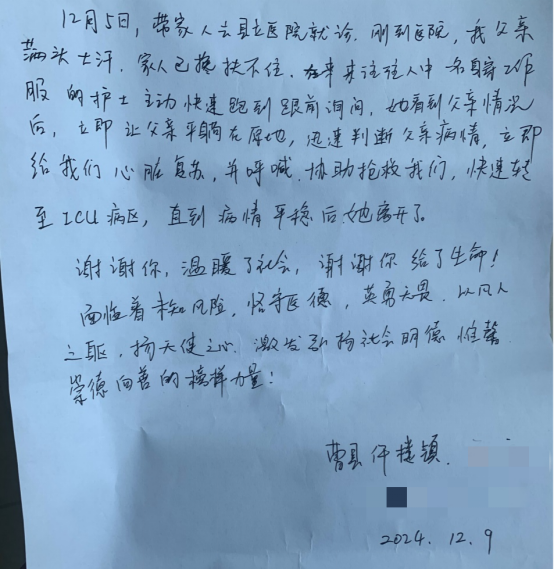 12月5日，带家人去县立医院就诊．刚到医院，我父亲
满头大汗．家人已搀扶不住．在来来往往人中一名身穿工作
服的护士主动快速跑到跟前询问，她看到父亲情况
后，立即让父亲平躺在原地，迅速判断父亲病情，立即
给我们心脏复苏，并呼喊．协助抢救我们，快速转
至ICU病区，直到病情平稳后她离开了。
谢谢你，温暖了社会，谢谢你给了生命！
面临着未知风险，恪守医德，英勇无畏．以凡人
之躯，扬天使之心．激发弘扬社会明德惟馨
崇德向善的榜样力量！
曹县仵楼镇．
2024．12．9